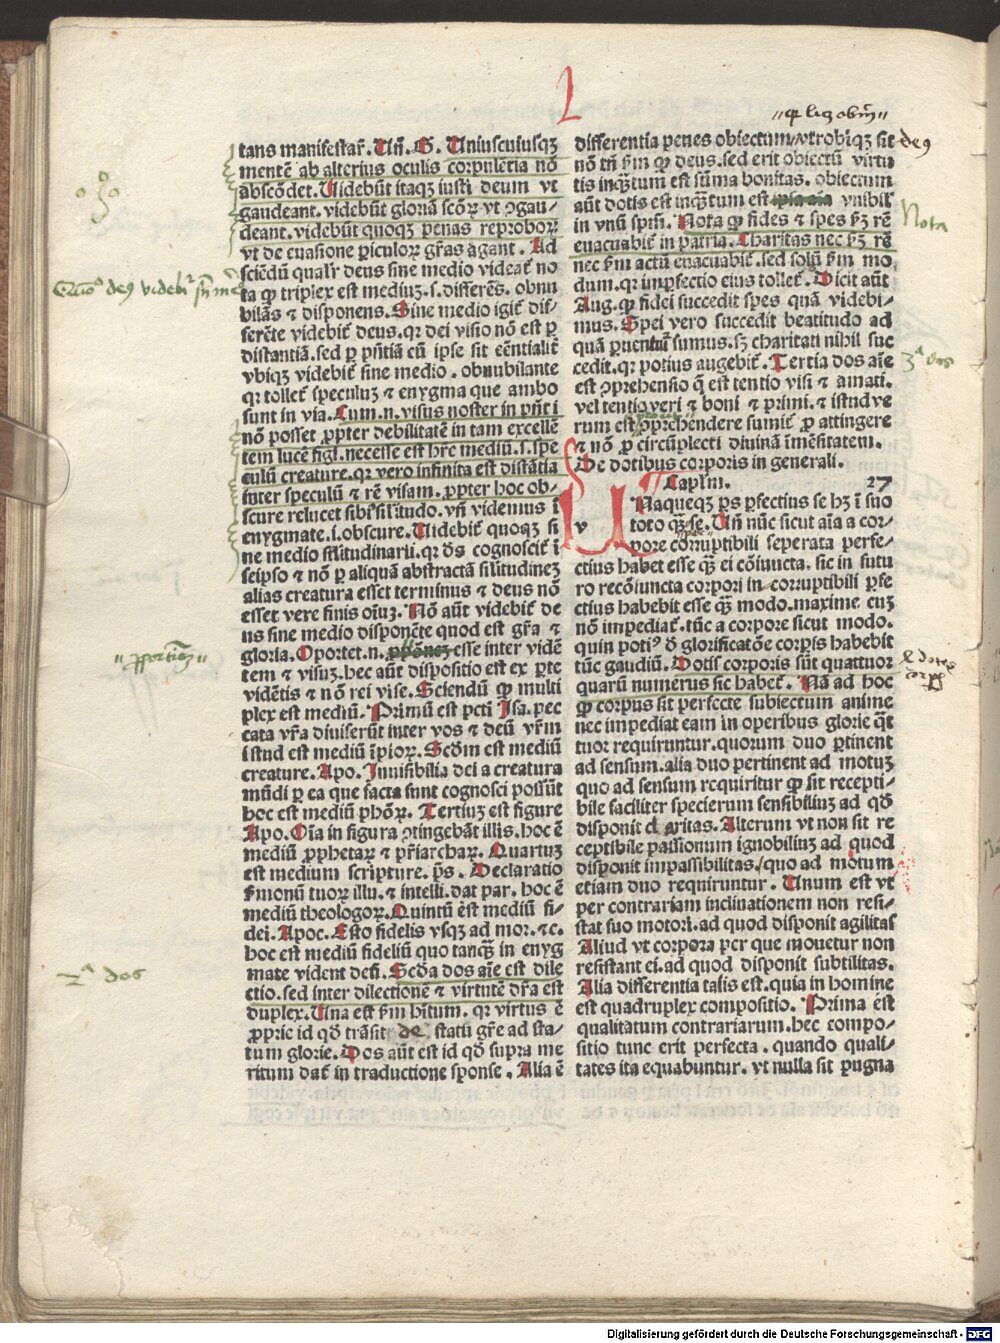 L
tans manifestat᷑. Vñ. G. Vniuscuiusqꝫ
mentē ab alterius oculis corpulētia nō
abscōdet. Videbūt itaqꝫ iusti deum vt
gaudeant. videbūt gloriā scōꝝ vt ꝯgau⸗
deant. videbūt quoqꝫ penas reproboꝝ
vt de euasione piculoꝝ gr̄as agant. Ad
sciēdū qualr̄ deus sine medio videat᷑ no
ta ꝙ triplex est mediuꝫ .s. differēs. obnu
bilās ⁊ disponens. Sine medio igit᷑ dif⸗
ferēte videbit᷑ deus. qꝛ dei visio nō est ꝑ
distantiā. sed ꝑ pn̄tiā cū ipse sit eēntialit᷑
vbiqꝫ videbit᷑ sine medio . obnubilante
qꝛ tollet᷑ speculuꝫ ⁊ enygma que ambo
sunt in via. Cum .n. visus noster in pn̄ti
nō posset ꝓpter debilitatē in tam excellē
tem lucē figi. necesse est hr̄e mediū .s. spe
culū creature. qꝛ vero infinita est distātia
inter speculū ⁊ rē visam. ꝓpter hoc ob⸗
scure relucet sibi silitudo. vñ videmus ī
enygmate .i. obscure. Videbit᷑ quoqꝫ si
ne medio silitudinarii. qꝛ dꝰs cognoscit᷑ ī
seipso ⁊ nō ꝑ aliquā abstractā silitudineꝫ
alias creatura esset terminus ⁊ deus nō
esset vere finis oīuꝫ. Nō aūt videbit᷑ de
us sine medio disponēte quod est gr̄a ⁊
gloria. Oportet .n. esse inter vidē
tem ⁊ visuꝫ. hec aūt dispositio est ex ꝑte
vidētis ⁊ nō rei vise. Sciendū ꝙ multi
plex est mediū. Primū est pctī Isa. pec
cata vr̄a diuiserūt inter vos ⁊ deū vr̄m
istud est mediū īpioꝝ. Scdm est mediū
creature. Apo. Inuisibilia dei a creatura
mūdi ꝑ ea que facta sunt cognosci possūt
hoc est mediū phōꝝ. Tertiuꝫ est figure
Apo. Oīa in figura ꝯtingebāt illis. hoc ē
mediū ꝓphetaꝝ ⁊ pr̄iarchaꝝ. Quartuꝫ
est medium scripture. ps̄. Declaratio
sermonū tuoꝝ illu. ⁊ intelli. dat par. hoc ē
mediū theologoꝝ. Quintū est mediū fi⸗
dei. Apoc. Esto fidelis vsqꝫ ad mor. ⁊c.
hoc est mediū fideliū quo tanqꝫ̄ in enyg
mate vident deū. Scd̄a dos aīe est dile
ctio. sed inter dilectionē ⁊ virtutē dr̄a est
duplex. Vna est ẜm hītum. qꝛ virtus ē
ꝓprie id qđ trāsit de statu gr̄e ad sta⸗
tum glorie. Dos aūt est id qđ supra me
ritum dat᷑ in traductione sponse . Alia ē
differentia penes obiectum/vtrobiqꝫ sit
nō tn̄ ẜm ꝙ deus. sed erit obiectū virtu
tis inqꝫ̄tum est sūma bonitas. obiectum
aūt dotis est inqꝫ̄tum est vnibil
in vnū spm̄. Nota ꝙ fides ⁊ spes ẜꝫ rē
euacuabit᷑ in patria. Charitas nec ẜꝫ rē
nec ẜm actū euacuabit᷑. sed solū ẜm mo
dum. qꝛ imꝑfectio eius tollet᷑. Dicit aūt
Aug. ꝙ fidei succedit spes quā videbi⸗
mus. Spei vero succedit beatitudo ad
quā ꝑuenturi sumus. sꝫ charitati nihil suc
cedit. qꝛ potius augebit᷑. Tertia dos aīe
est ꝯprehensio q̄ est tentio visi ⁊ amati.
vel tentio veri ⁊ boni ⁊ primi. ⁊ istud ve
rum est ꝯprehendere sumit᷑ ꝓ attingere
⁊ nō ꝓ circūplecti diuinā īmēsitatem.
De dotibus corporis in generali.
Caplm. 27
VNaqueqꝫ ps ꝑfectius se hꝫ ī suo
toto qꝫ̄ ꝑ se. Vñ nūc sicut aīa a cor⸗
pore corruptibili seperata perfe⸗
ctius habet esse qꝫ̄ ei cōiuncta. sic in futu
ro recōiuncta corpori in⸗corruptibili ꝑfe
ctius habebit esse qꝫ̄ modo. maxime cuꝫ
nō impediat᷑. tūc a corpore sicut modo.
quin potiꝰ ō glorificatōe corꝑis habebit
tūc gaudiū. Dotis corporis sūt quattuor
quarū numerus sic habet᷑. Nā ad hoc
ꝙ corpus sit perfecte subiectum anime
nec impediat eam in operibus glorie qt̄
tuor requiruntur. quorum duo ꝑtinent
ad sensum. alia duo pertinent ad motuꝫ
quo ad sensum requiritur ꝙ sit recepti⸗
bile faciliter specierum sensibiliuꝫ ad qđ
disponit claritas. Alterum vt non sit re
ceptibile passionum ignobiliuꝫ ad quod
disponit impassibilitas./quo ad motum
etiam duo requiruntur . Vnum est vt
per contrariam inclinationem non resi⸗
stat suo motori. ad quod disponit agilitas
Aliud vt corpora per que mouetur non
resistant ei. ad quod disponit subtilitas.
Alia differentia talis est. quia in homine
est quadruplex compositio. Prima est
qualitatum contrariarum. hec compo⸗
sitio tunc erit perfecta . quando quali⸗
tates ita equabuntur. vt nulla sit pugna
deꝰ
Nota
3ª dos
2ª dos
Digitalisierung gefördert durch die Deutsche Forschungsgemeinschaft - DFG